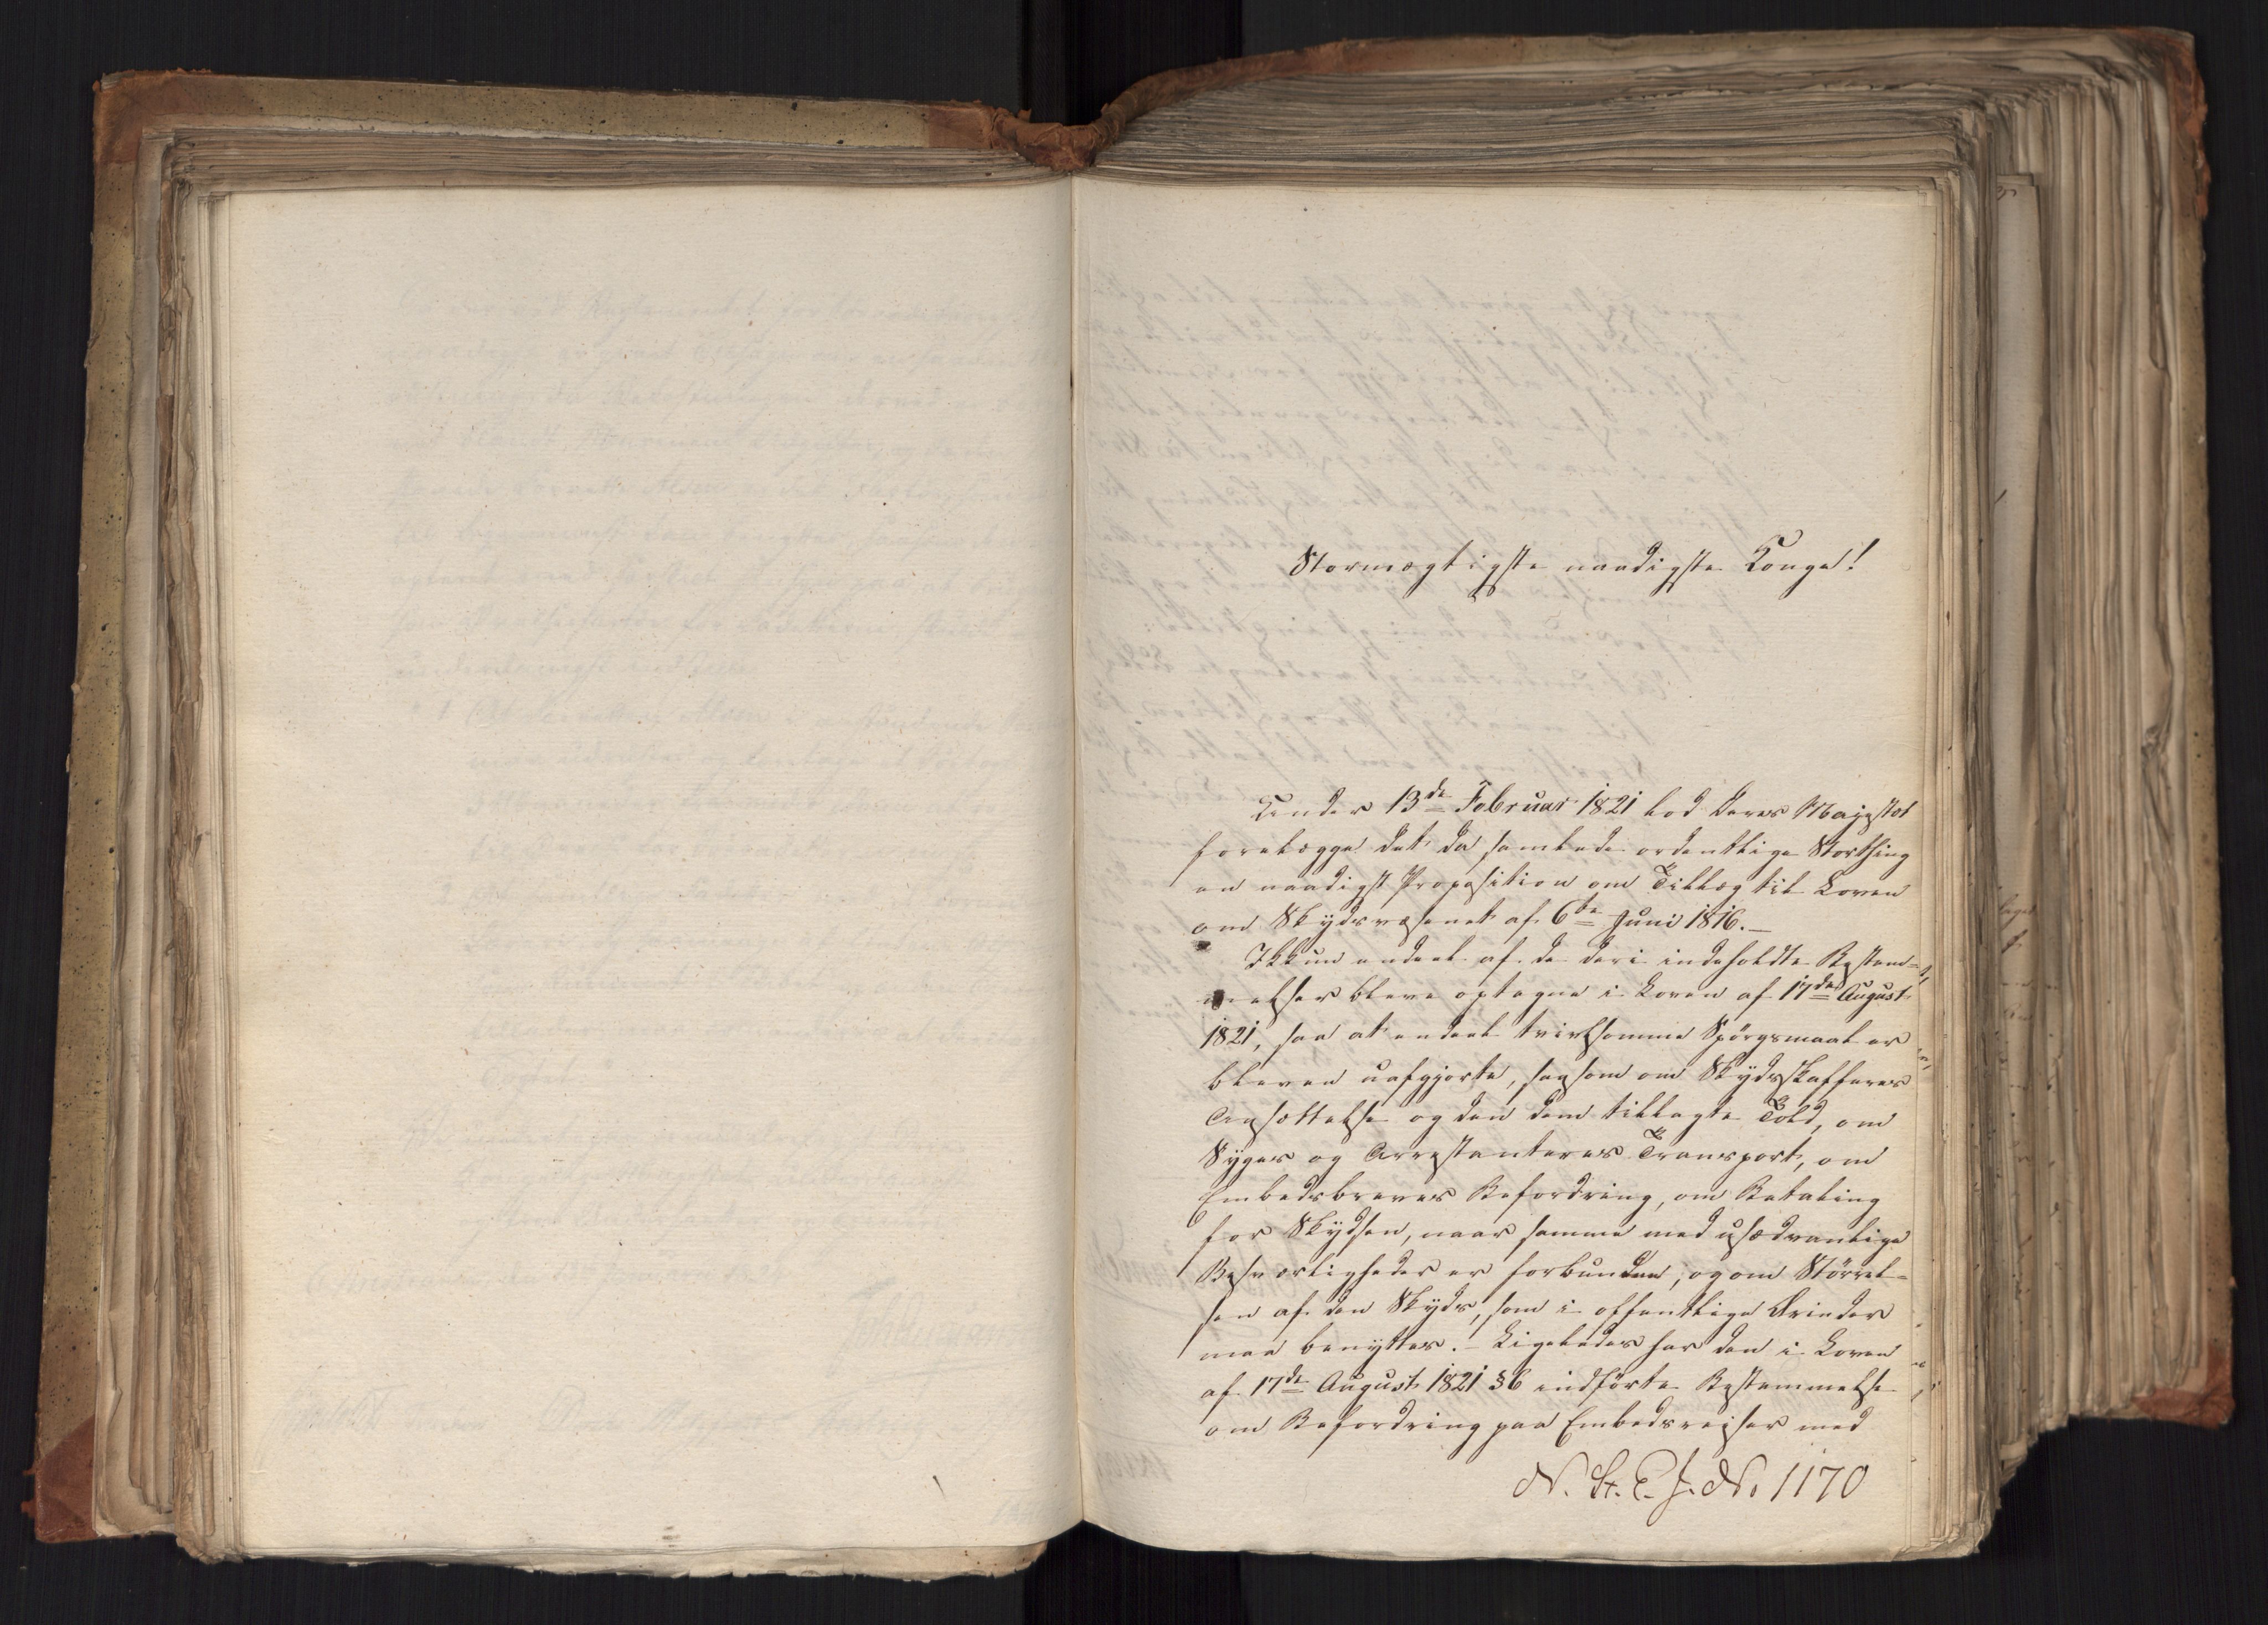 Stormægtigste naadigste Konge!
Under 13de Februar 1821 lod Deres Majestet
forelægge det da samlede ordentlige Storthing
en naadigst Proposition om Tillæg til Loven
om Skydsvæsenet af 6te Juni 1816.
Ikkun endeel af de deri indeholdte Bestem-
melser bleve optagne i Loven af 17de August
1821, saa at endeel tvivlsomme Spörgsmaal er
bleven uafgjorte, saasom om Skydsskafferes
Ansættelse og den dem tillagte Told, om
Syges og Arrestanteres Transport, om
Embedsbreves Befordring, om Betaling
for Skydsen, naar samme med usædvanlige
Besværligheder er forbunden; og om Störrel-
sen af den Skyds, som i offentlige Ærinder
maa benyttes. Ligeledes har den i Loven
af 17de August 1821 § 6 indförte Bestemmelse
om Befordring paa Embedsreiser med
N. St. E. J. No 1170